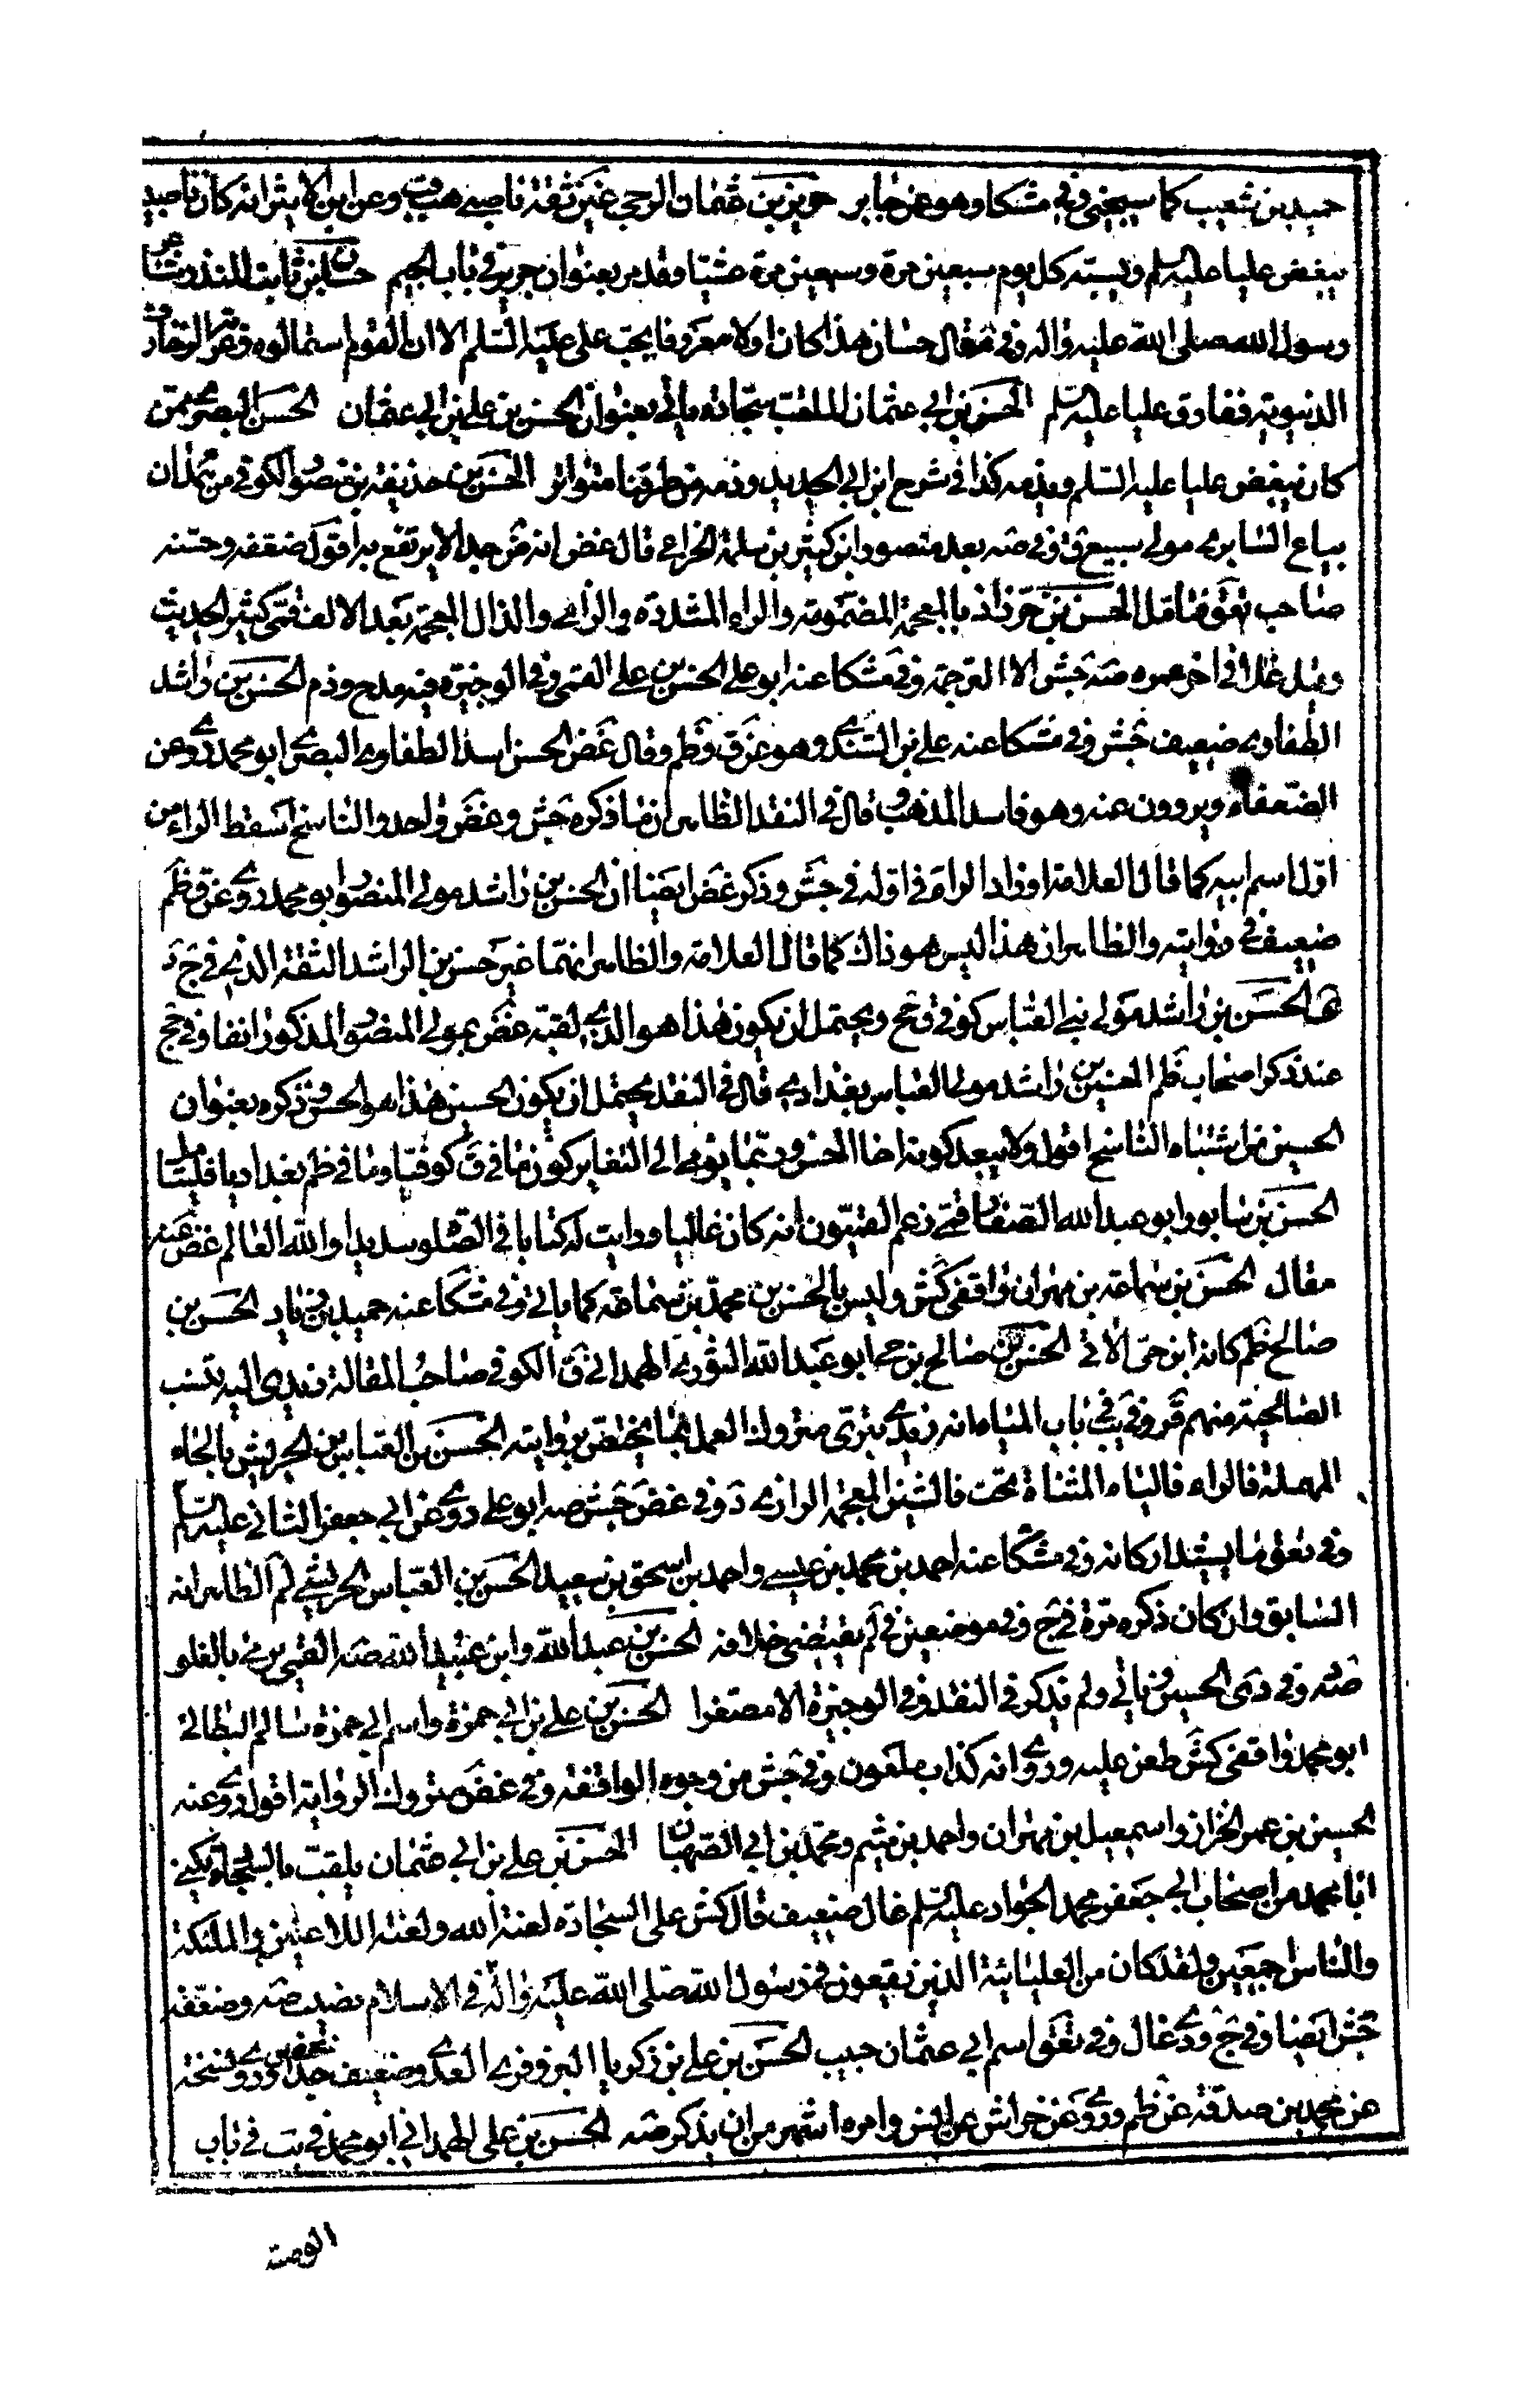 حميد بن شعيب كما سيجئ وفي مشكا وهو عن جابر حريز بن عثمان الرحبي غير ثقة ناصبي هب وعن ابن الاثير انه كان ناصبيا
يبغض عليا عليه السلم ويسبه كل يوم سبعين مرة وسبعين مرة عشيا وقد مر بعنوان جرير في باب الجيم حسان بن ثابت المنذر شاعر
رسول الله صلى الله عليه واله وفي مقال حسان هذا كان اولا معروفا بحب علي عليه السلم الا ان القوم استمالوه
الدنيوية ففارق عليا عليه السلم الحسن بن ابي عثمان الملقب سجادة ياتي بعنوان الحسن بن علي بن ابي عثمان الحسن البصري ممن
كان يبغض عليا عليه السلم ويذمه كذا في شرح ابن ابي الحديد وذمه من طرقنا متواتر الحسن بن حذيفة بن منصور الكوفي من همدان
بياع السابري مولى سبيع ق وفي صه بعد منصور ابن كثير بن سلمة الخزاعي قال غض انه ضر جدا لا يرتفع به اقول ضعفه وحسنه
صاحب تعق فتامل الحسن بن خرزاذ بالمعجمة المضمومة والراء المشددة والزاي والذال المعجمة بعد الالف قمي كثير الحديث
وقيل غلا في اخر عمره صه جش الا الترجمة وفي مشكا عنه ابو علي الحسن بن علي القمي وفي الوجيزة فيه مدح وذم الحسن بن راشد
الطفاوي ضعيف جش وفي مشكا عنه علي بن السندي وهو عن ق وظم وقال غض الحسن اسد الطفاوي البصري ابو محمد روى عن
الضعفاء ويروون عنه وهو فاسد المذهب قال في النقد الظاهر ان ما ذكره جش وغض واحد والناسخ اسقط الراء من
اول اسم ابيه كما قال العلامة او زاد الراء في اوله في جش وذكر غض ايضا ان الحسن بن راشد مولى المنصور ابو محمد روى عن ق وظم
ضعيف في روايته والظاهر ان هذا ليس هو ذاك كما قال العلامة والظاهر انهما غير حسن بن الراشد الثقة الذي في ج د
الحسن بن راشد مولى بني العباس كوفي ق جخ ويحتمل ان يكون هذا هو الذي لقبه غض بمولى المنصور المذكور انفا وفي جخ
عند ذكر اصحاب ظم الحسين بن راشد مولى العباس بغدادي قال في النقد يحتمل ان يكون الحسين هذا هو الحسن وذكره بعنوان
الحسين من اشتباه الناسخ اقول ولا يبعد كونه اخا الحسن وربما يومي الى التغاير كون ما في ق كوفيا وما في ظم بغداديا فليتامل
الحسن بن سابور ابو عبد الله الصفار قمي زعم القميون انه كان غاليا ورايت له كتابا في الصلو سديدا والله العالم غض عنه
مقال الحسن بن سماعة بن مهران واقفي كش وليس بالحسن بن محمد بن سماعة كما ياتي وفي مشكا عنه حميد بن زياد الحسن بن
صالح ظم كانه ابن حي الاتي الحسن بن صالح بن حي ابو عبد الله الثوري الهمداني ق الكوفي صاحب المقالة زيدي اليه تنسب
الصالحية منهم قر وفي يب في باب المياه انه زيدي بتري متروك العمل بما يختص بروايته الحسن بن العباس بن الحريش بالحاء
المهملة فالراء فالياء المثناة تحت فالشين المعجمة الرازي د وفي غض جش صه ابو علي روى عن ابي جعفر الثاني عليه السلم
وفي تعق ما يشيد اركانه وفي مشكا عنه احمد بن محمد بن عيسى واحمد بن اسحق بن سعيد الحسن بن العباس الحريشي لم الظاهر انه
السابق وان كان ذكره مرة في ج وفي موضعين في لم يقتضي خلافه الحسن بن عبد الله وابن عبيد الله صه القمي يرمى بالغلو
صه وفي دي الحسين وياتي ولم يذكر في النقد وفي الوجيزة الا مصغرا الحسن بن علي بن ابي حمزة واسم ابي حمزة سالم البطائني
ابو محمد واقفي كش طعن عليه وروى انه كذاب ملعون وفي جش من وجوه الواقفة وفي غض متروك الرواية اقول روى عنه
الحسين بن عمر الخزاز واسمعيل بن مهران واحمد بن ميثم ومحمد بن ابي الصهبان الحسن بن علي بن ابي عثمان يلقب بالسجادة يكنى
ابا محمد من اصحاب ابي جعفر محمد الجواد عليه السلم غال ضعيف قال كش على السجادة لعنة الله ولعنة اللاعنين والملئكة
والناس اجمعين ولقد كان من العليائية الذين يقعون في رسول الله صلى الله عليه واله في الاسلام نصيب صه وضعفه
جش ايضا وفي ج ودي غال وفي تعق اسم ابي عثمان حبيب الحسن بن علي بن زكريا البزوفري العدوي ضعيف جدا وروى نسخة
عن محمد بن صدقة عن ظم وروى عن خراش عن انس وامره اشهر من ان يذكر صه الحسن بن علي الهمداني ابو محمد في يب في باب
الوصية